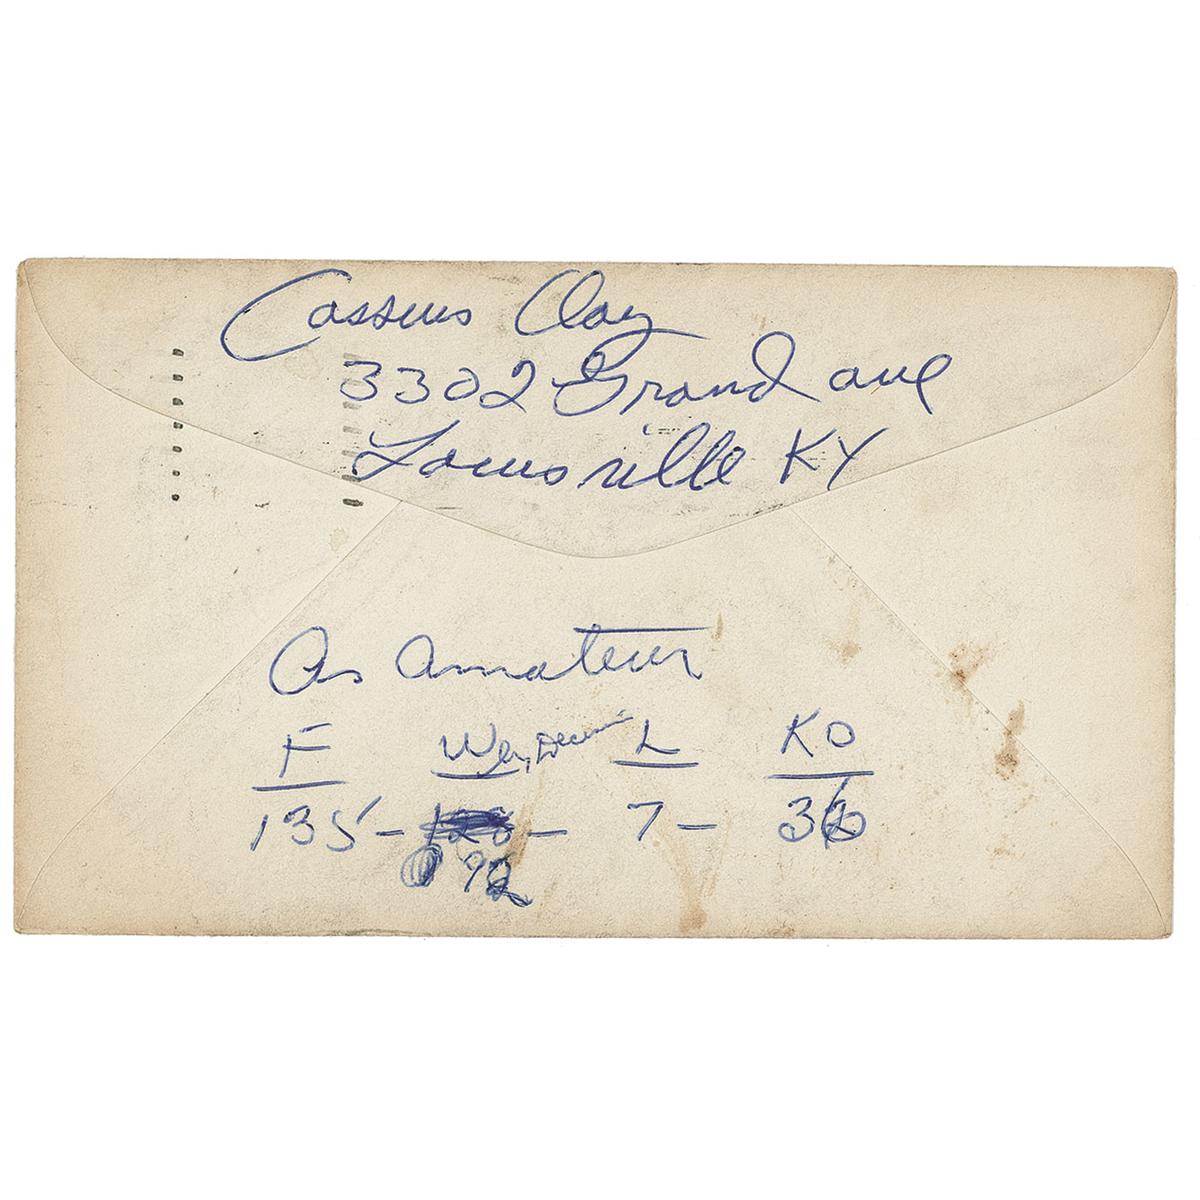 Cassius Clay
3302 Grand ave
Louisville KY
As Amateur
F W by Decision L KO
135 - 128 - 7 - 36
92